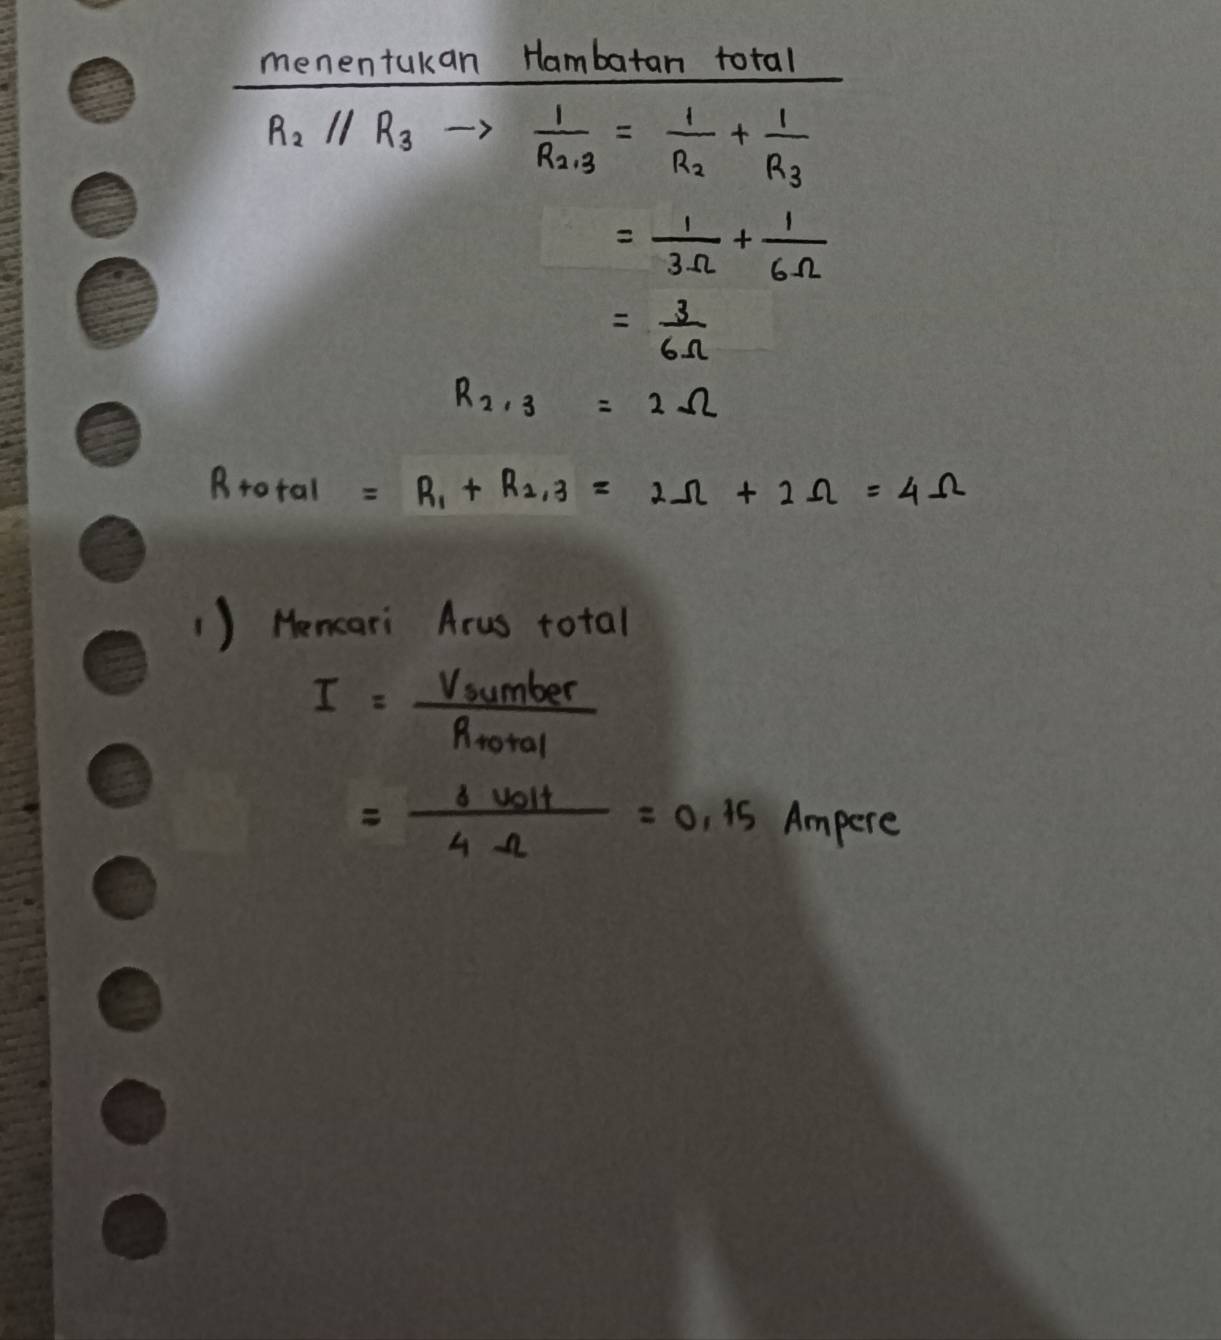 menentukan Hambatan total
R₂ // R₃ → 1/R₂,₃ = 1/R₂ + 1/R₃
= 1/3Ω + 1/6Ω
= 3/6Ω
R₂,₃ = 2Ω
Rtotal = R₁ + R₂,₃ = 2Ω + 2Ω = 4Ω
1) Mencari Arus total
I = Vsumber/Rtotal
= volt/4 Ω = Ampere